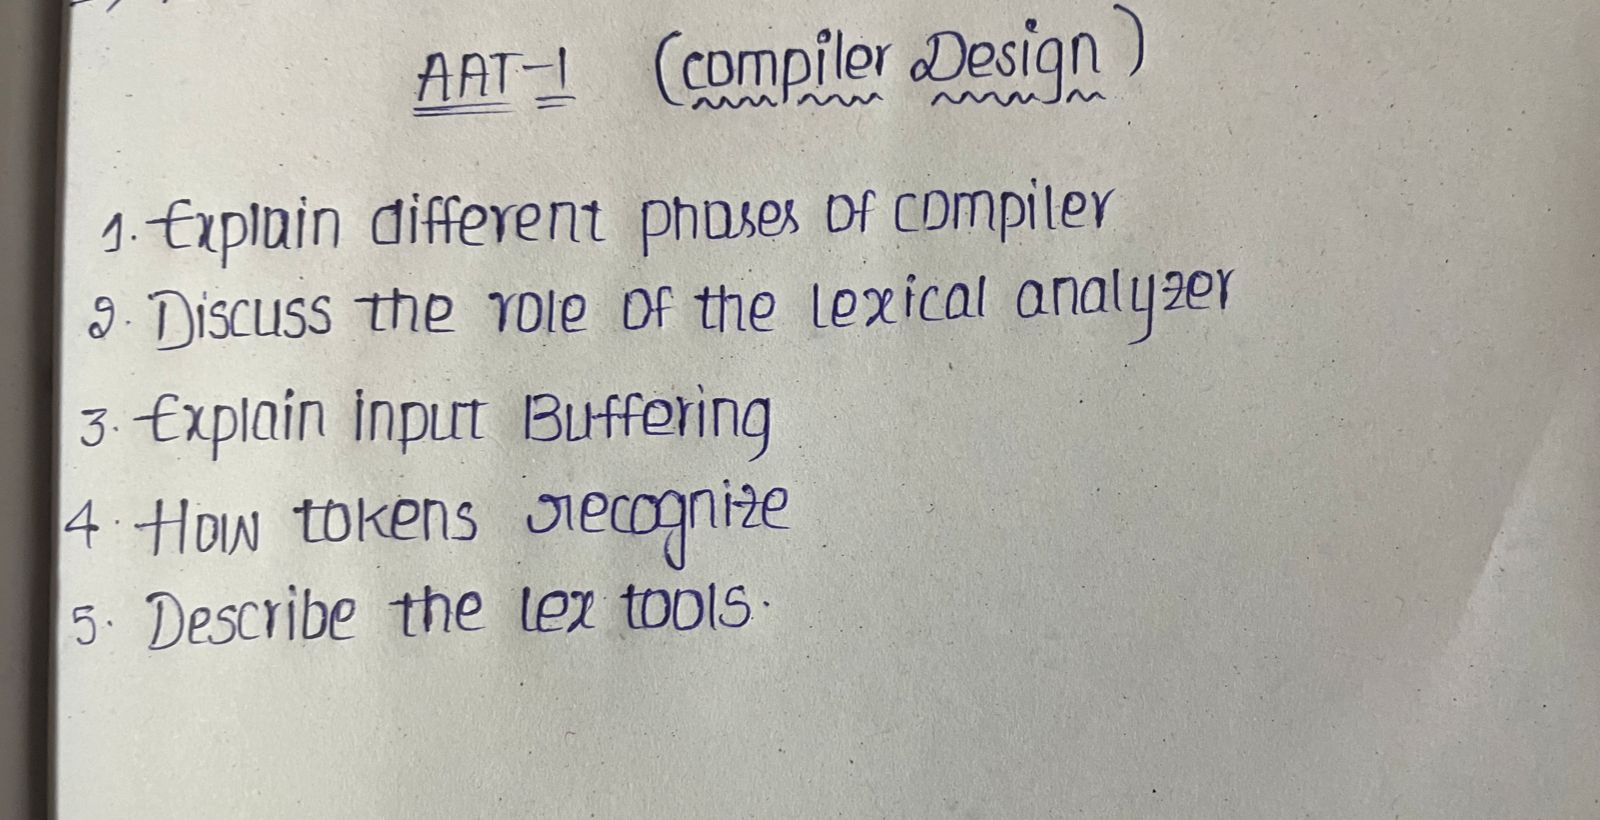 AAT-1 (compiler Design)
1. Explain different phases of compiler
2. Discuss the role of the lexical analyzer
3. Explain input Buffering
4. How tokens recognize
5. Describe the lex tools.